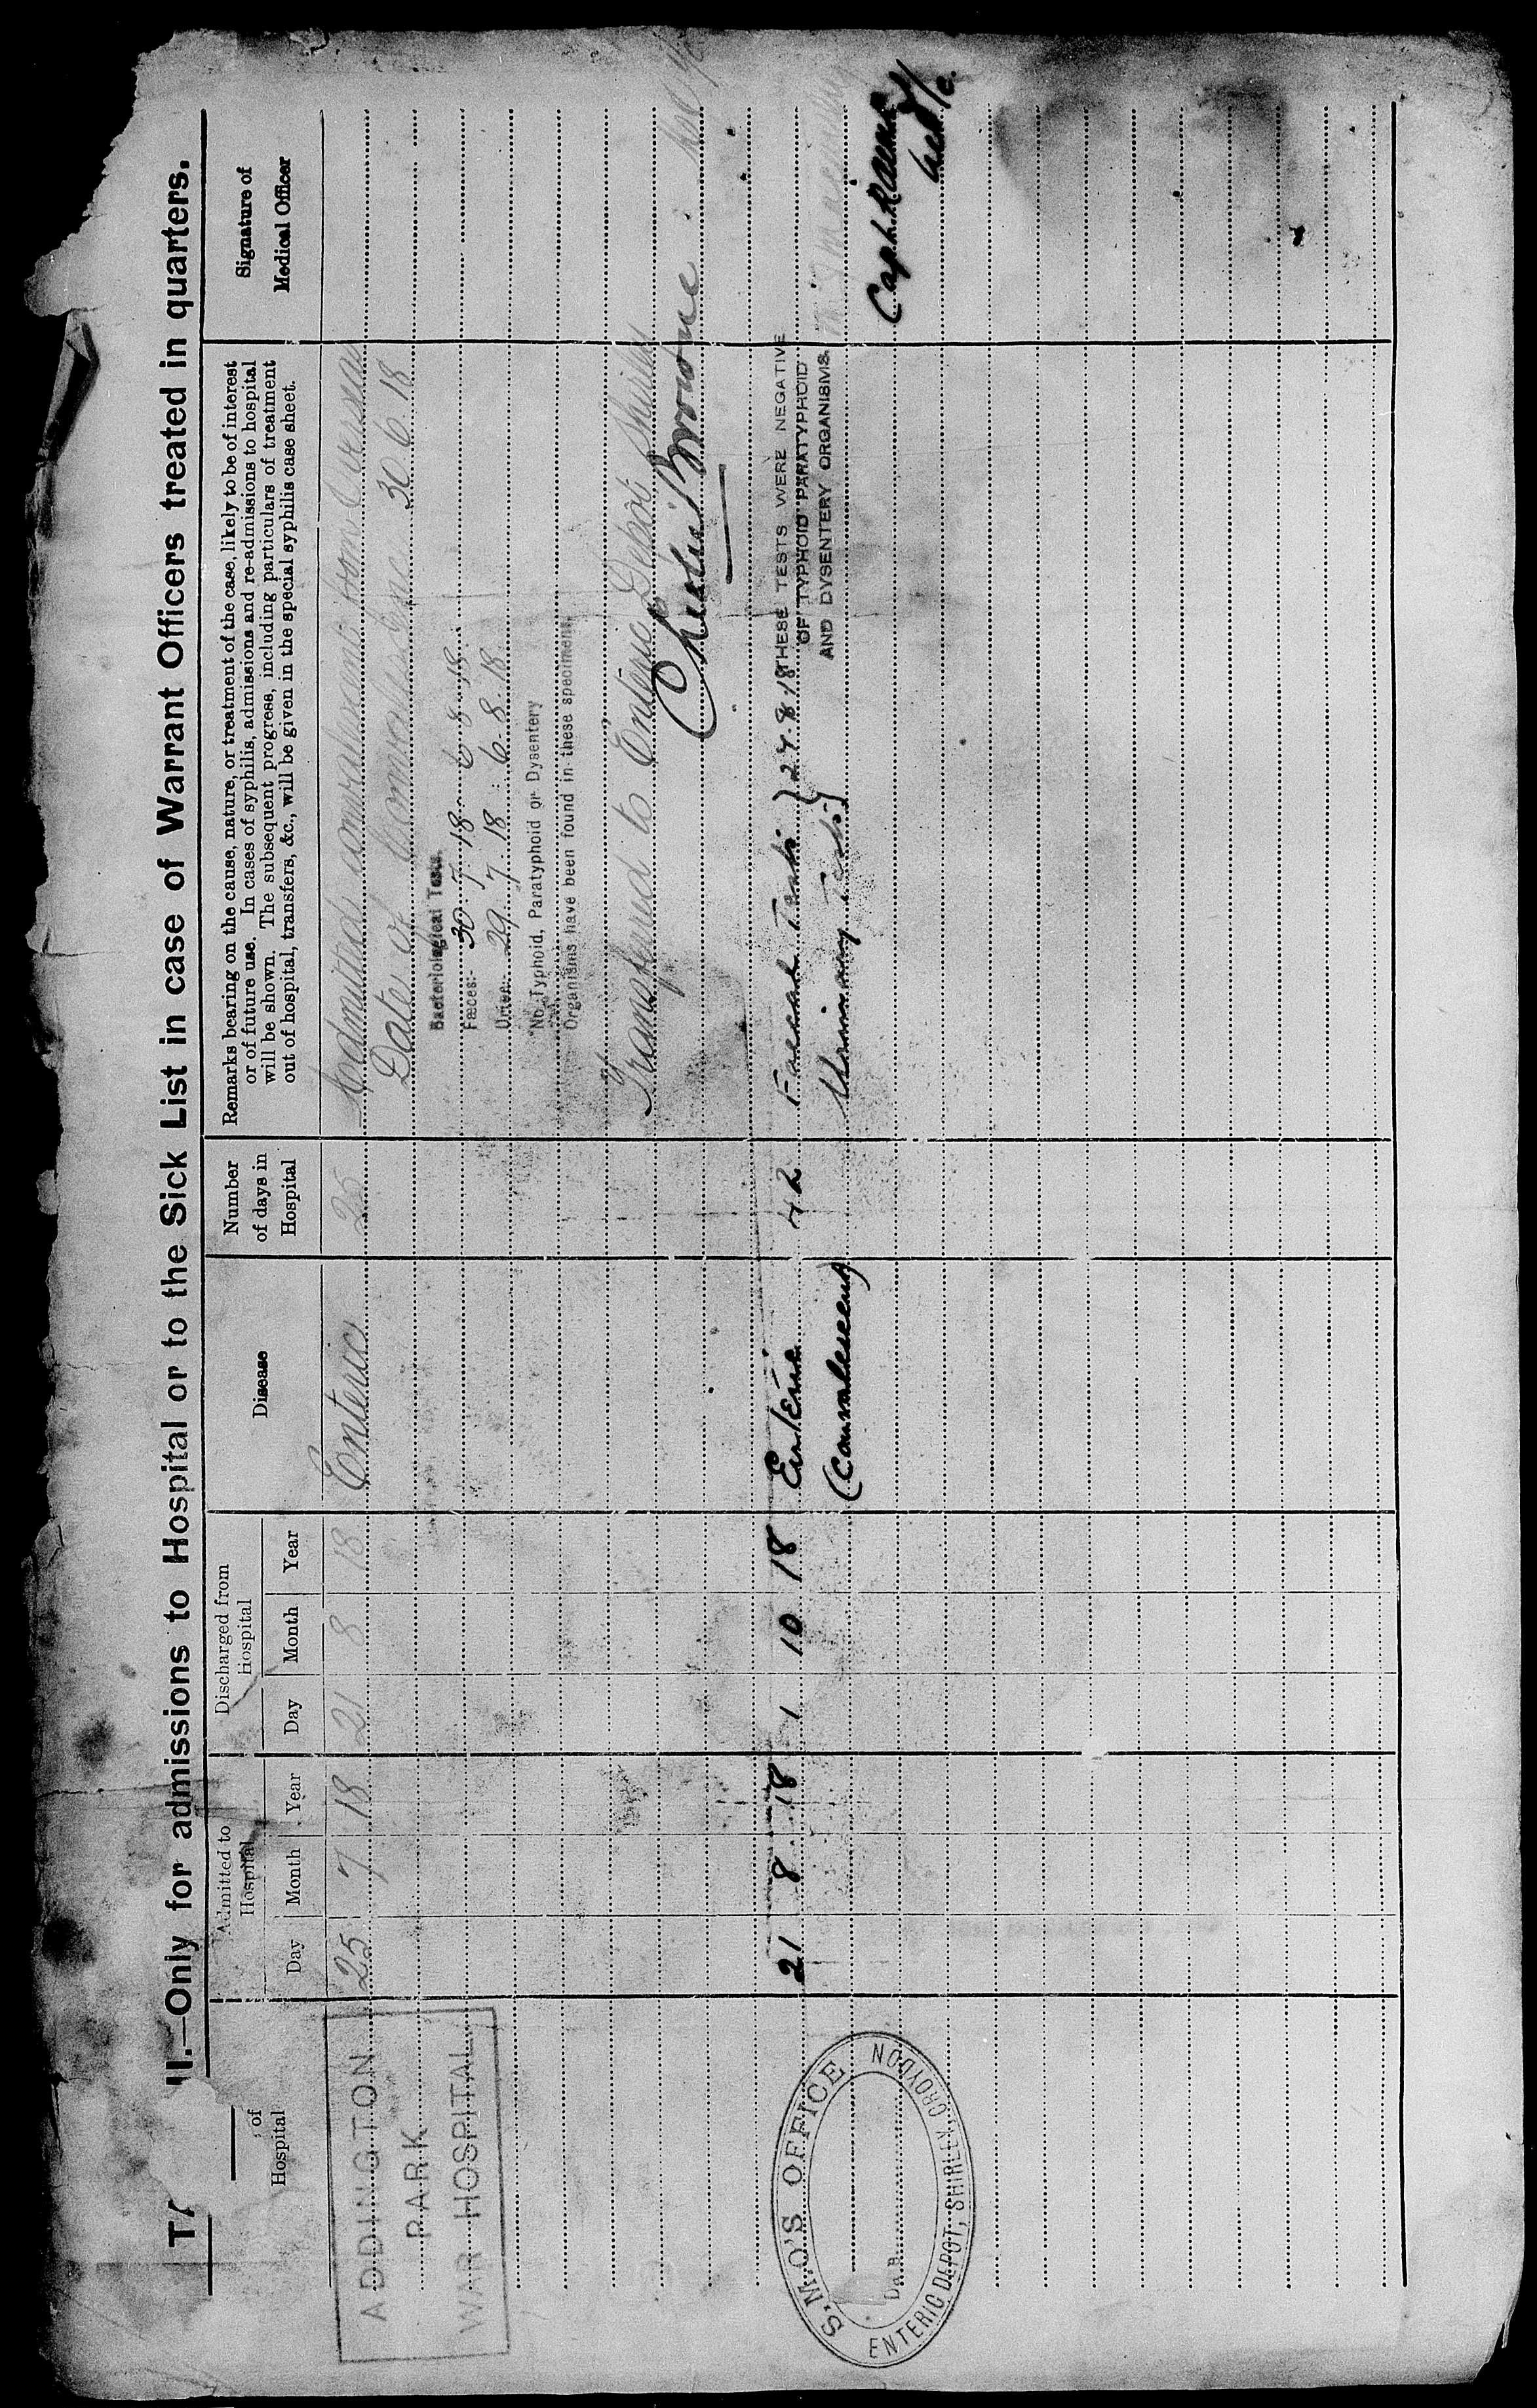 TA II.—Only for admissions to Hospital or to the Sick List in case of Warrant Officers treated in quarters.
of
Hospital
Admitted to
Hospital
Day
Month
Year
Discharged from
Hospital
Day
Month
Year
Disease
Number
of days in
Hospital
Remarks bearing on the cause, nature, or treatment of the case, likely to be of interest
or of future use. In cases of syphilis, admissions and re-admissions to hospital
will be shown. The subsequent progress, including particulars of treatment
out of hospital, transfers, &c., will be given in the special syphilis case sheet.
Signature of
Medical Officer
ADDINGTON
PARK
WAR HOSPITAL
25 7 18 21 8 18 Enteric 25 Admitted convalescent from Overseas
Date of Convalescence 30 6 18
Bacteriological Tests.
Fæces:- 30 7 18 6 8 18
Urine:- 29 7 18 6 8 18
"No Typhoid, Paratyphoid or Dysentery
Organisms have been found in these specimens"
Transferred to Enteric Depot Shirley
Browne
S.M.O'S OFFICE
ENTERIC DEPOT, SHIRLEY, CROYDON
21 8 18 1 10 18 Enteric 42 Faecal Tests } 27.8.18
(Convalescent) Urinary Tests }
THESE TESTS WERE NEGATIVE
OF TYPHOID PARATYPHOID
AND DYSENTERY ORGANISMS
Capt. RAMC